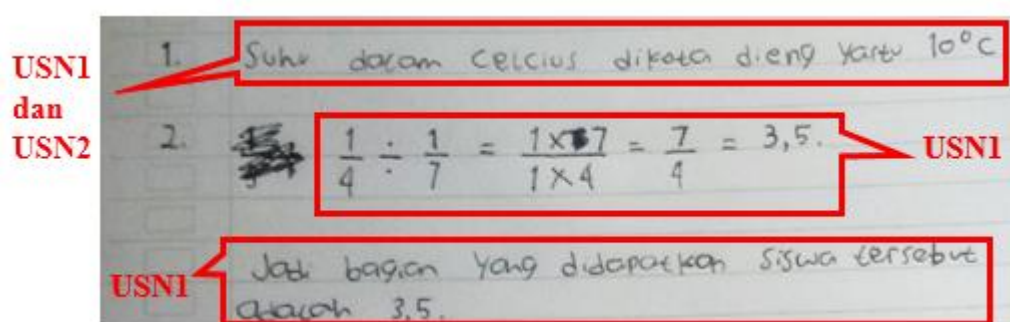 USN1
dan
USN2
1. Suhu dalam celcius dikota dieng yaitu 10°C
2. 1/4 ÷ 1/7 = 1×7/1×4 = 7/4 = 3,5.
USN1
USN1
Jadi bagian yang didapatkan siswa tersebut
adalah 3,5.